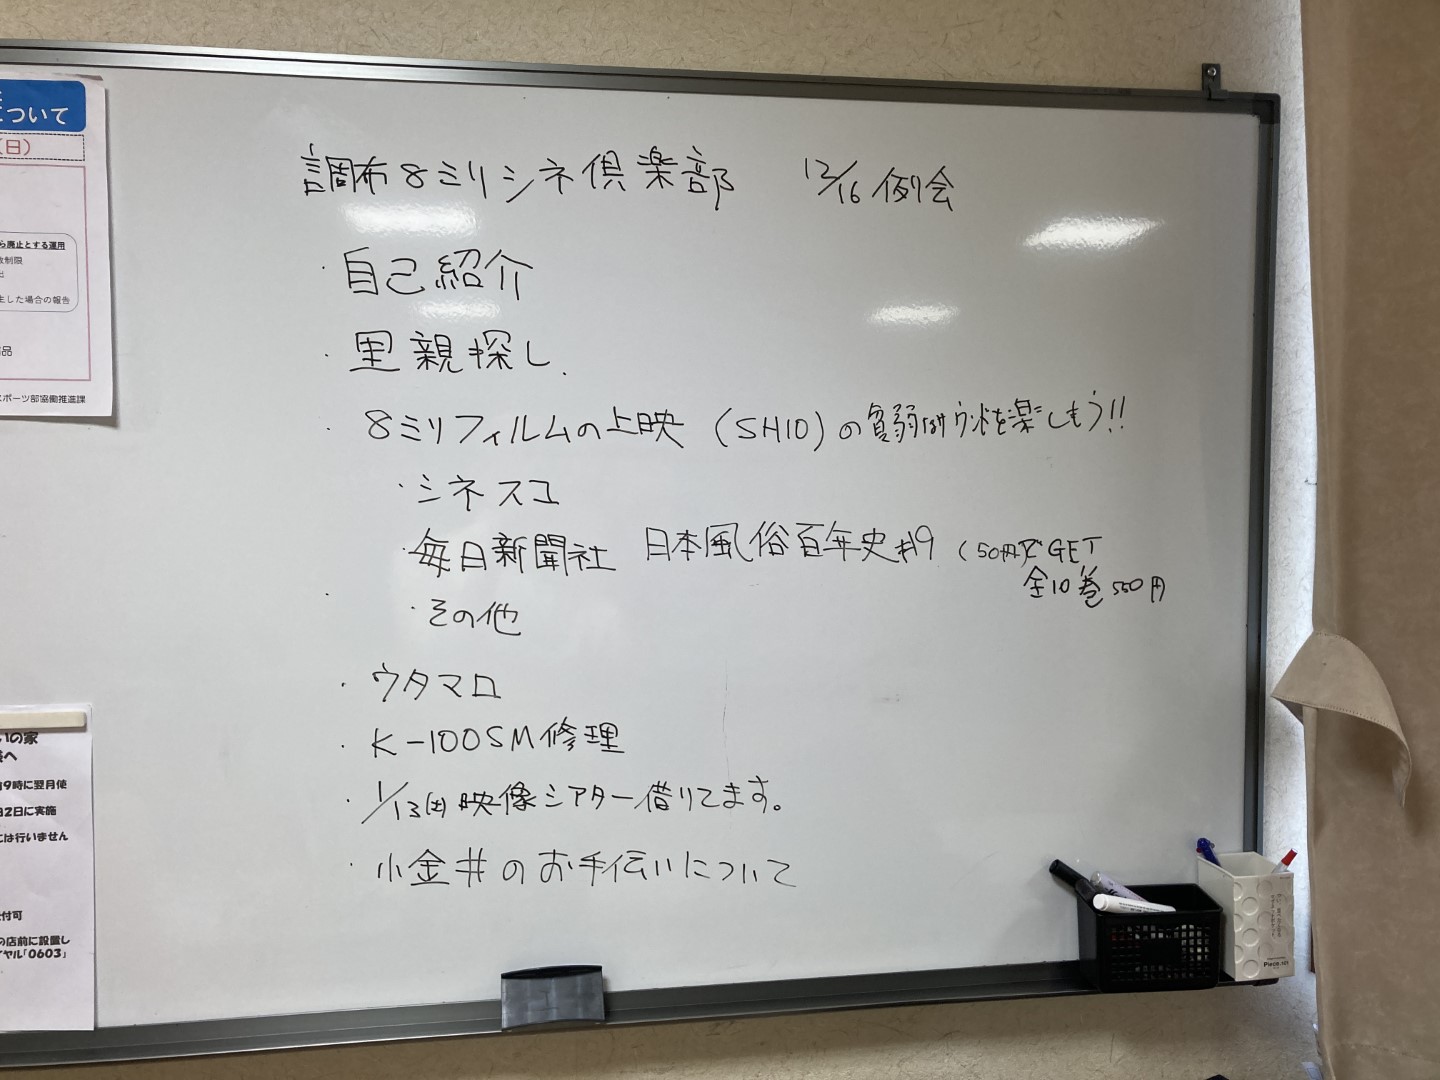 について
(日)
ら廃止とする運用
数制限
生した場合の報告
スポーツ部協働推進課
調布8ミリシネ倶楽部 12/16 例会
・自己紹介
・里親探し.
・8ミリフィルムの上映 (SH10)の貧弱なサウンドを楽しもう!!
・シネスコ
・毎日新聞社 日本風俗百年史#9 (50円でGET
全10巻 550円
・その他
・ウタマロ
・K-100SM修理
・1/13(土)映像シアター借りてます。
・小金井のお手伝いについて
いの家
様へ
9時に翌月使
2日に実施
には行いません
付可
の店前に設置し
イヤル「0603」
Piece.101